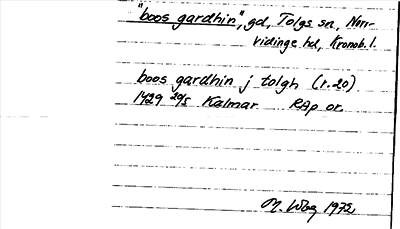 "boos gardhin", gd, Tolgs sn, Norr-
vidinge hd, Kronob. l.
boos gardhin j tolgh (r. 20)
1429 20/5 Kalmar RAp or.
M. Wbg 1972